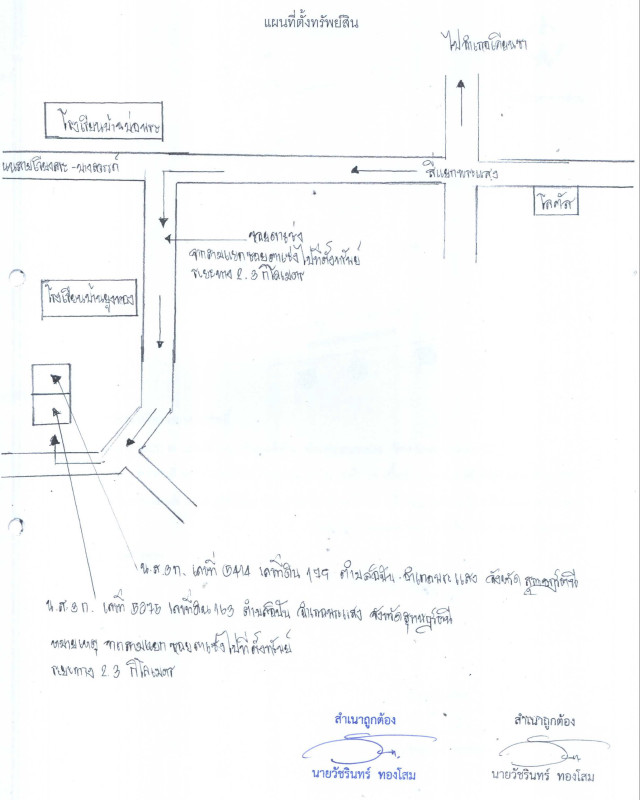 แผนที่ตั้งทรัพย์สิน
ไปอำเภอเคียนซา
โรงเรียนบ้านบ่อพระ
ถนนสายเวียงสระ-บางสวรรค์
สี่แยกพระแสง
โลตัส
ซอยตาเซ่ง
จากสามแยกซอยตาเซ่งไปที่ตั้งทรัพย์
ระยะทาง 2.3 กิโลเมตร
โรงเรียนบ้านยูงทอง
น.ส.3ก. เลขที่ เลขที่ดิน ตำบลสินปุน อำเภอพระแสง จังหวัดสุราษฎร์ธานี
น.ส.3ก. เลขที่ เลขที่ดิน 163 ตำบลสินปุน อำเภอพระแสง จังหวัดสุราษฎร์ธานี
หมายเหตุ จากสามแยกซอยตาเซ่งไปที่ตั้งทรัพย์
ระยะทาง 2.3 กิโลเมตร
สำเนาถูกต้อง
สำเนาถูกต้อง
นายวัชรินทร์ ทองโสม
นายวัชรินทร์ ทองโสม